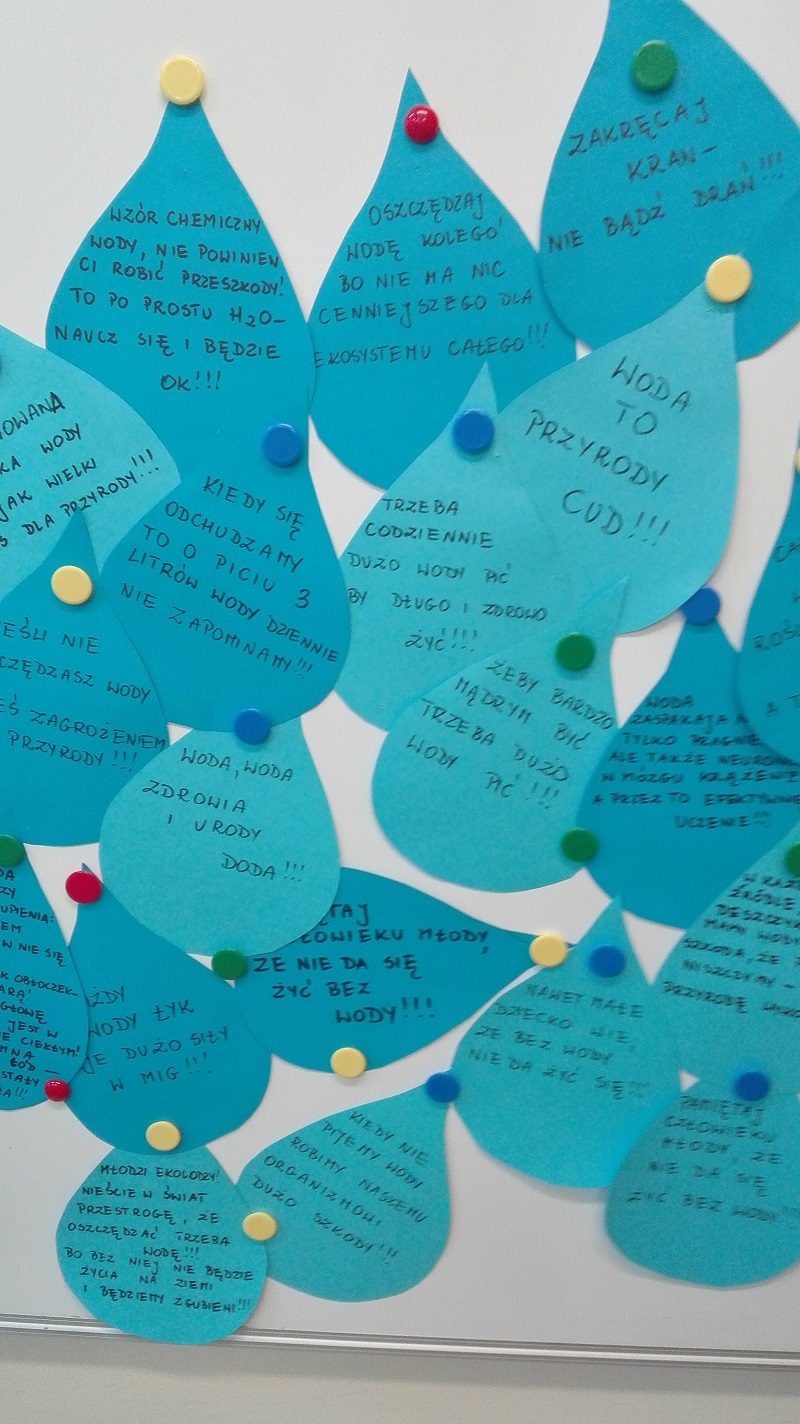 WZÓR CHEMICZNY
WODY, NIE POWINIEN
CI ROBIĆ PRZESZKODY!
TO PO PROSTU H2O-
NAUCZ SIĘ I BĘDZIE
OK!!!
OSZCZĘDZAJ
WODĘ KOLEGO
BO NIE MA NIC
CENNIEJSZEGO DLA
EKOSYSTEMU CAŁEGO!!!
ZAKRĘCAJ
KRAN-
NIE BĄDŹ DRAŃ!!!
WODA
TO
PRZYRODY
CUD!!!
OWANA
KA WODY
JAK WIELKI
DLA PRZYRODY!!!
KIEDY SIĘ
ODCHUDZAMY
TO O PICIU 3
LITRÓW WODY DZIENNIE
NIE ZAPOMINAMY!!!
TRZEBA
CODZIENNIE
DUŻO WODY PIĆ
BY DŁUGO I ZDROWO
ŻYĆ!!!!
EŚLI NIE
CZĘDZASZ WODY
EŚ ZAGROŻENIEM
PRZYRODY!!!
ŻEBY BARDZO
MĄDRYM BYĆ
TRZEBA DUŻO
WODY PIĆ!!!
WODA
ZASPAKAJA N
TYLKO PRAGNIE
ALE TAKŻE NEURON
W MÓZGU KRĄŻENIE
A PRZEZ TO EFEKTYWNE
UCZENIE!!!
WODA, WODA
ZDROWIA
I URODY
DODA!!!
UPIENIA:
EM
W NIE SIĘ
K OBŁOCZEK-
ARĄ!
GŁOWĘ
JEST W
E CIEKŁYM!
MNA
ŁÓD -
STAŁY
A!!!
ŻDY
WODY ŁYK
JE DUŻO SIŁY
W MIG!!!
TAJ
ŁOWIEKU MŁODY,
ŻE NIE DA SIĘ
ŻYĆ BEZ
WODY!!!
NAWET MAŁE
DZIECKO WIE,
ŻE BEZ WODY
NIE DA ŻYĆ SIĘ!!!
W KAŻ
ŹRÓDLE
DESZCZU
MAMY WODY
SZKODA, ŻE
NISZCZYMY -
PRZYRODĘ
PAMIĘTAJ
CZŁOWIEKU
MŁODY, ŻE
NIE DA SIĘ
ŻYĆ BEZ WODY!!!
KIEDY NIE
PIJEMY WODY
ROBIMY NASZEMU
ORGANIZMOWI
DUŻO SZKODY!!!
MŁODZI EKOLODZY!
NIEŚCIE W ŚWIAT
PRZESTROGĘ, ŻE
OSZCZĘDZAĆ TRZEBA
WODĘ!!!
BO BEZ NIEJ NIE BĘDZIE
ŻYCIA NA ZIEMI
I BĘDZIEMY ZGUBIENI!!!